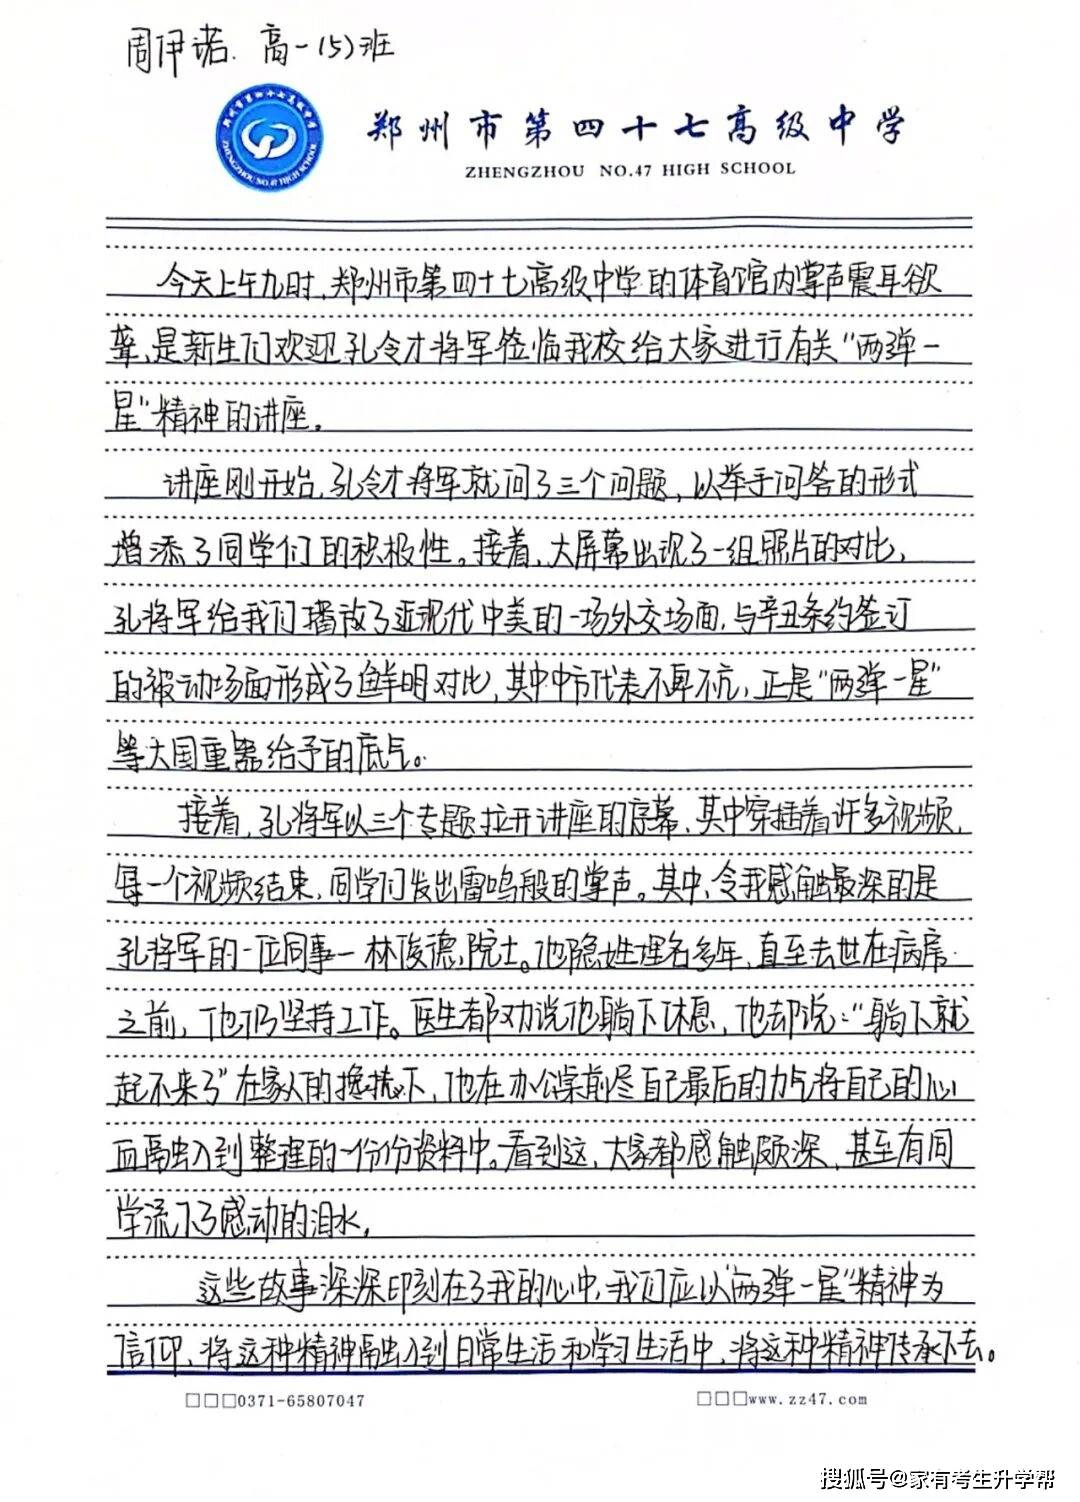 周伊诺. 高一(5)班
郑州市第四十七高级中学
ZHENGZHOU NO.47 HIGH SCHOOL
郑州市第四十七高级中学
ZHENGZHOU NO.47 HIGH SCHOOL
今天上午九时,郑州市第四十七高级中学的体育馆内掌声震耳欲
聋,是新生们欢迎孔令才将军莅临我校给大家进行有关“两弹一
星”精神的讲座。
讲座刚开始,孔令才将军就问了三个问题,以举手问答的形式
增添了同学们的积极性。接着,大屏幕出现了一组照片的对比,
孔将军给我们播放了近现代中美的一场外交场面,与辛丑条约签订
的被动场面形成了鲜明对比,其中中方代表不卑不亢,正是“两弹一星”
等大国重器给予的底气。
接着,孔将军以三个专题拉开讲座的序幕,其中穿插着许多视频,
每一个视频结束,同学们发出雷鸣般的掌声。其中,令我感触最深的是
孔将军的一位同事一林俊德,院士。他隐姓埋名多年,直至去世在病床
之前,他仍坚持工作。医生都劝说他躺下休息,他却说:“躺下就
起不来了”在家人的搀扶下,他在办公桌前尽自己最后的力气将自己的心
血融入到整理的一份份资料中。看到这,大家都感触颇深,甚至有同
学流下了感动的泪水。
这些故事深深印刻在了我的心中,我们应以“两弹一星”精神为
信仰,将这种精神融入到日常生活和学习生活中,将这种精神传承下去。
□□□0371-65807047
□□□www.zz47.com
搜狐号@家有考生升学帮